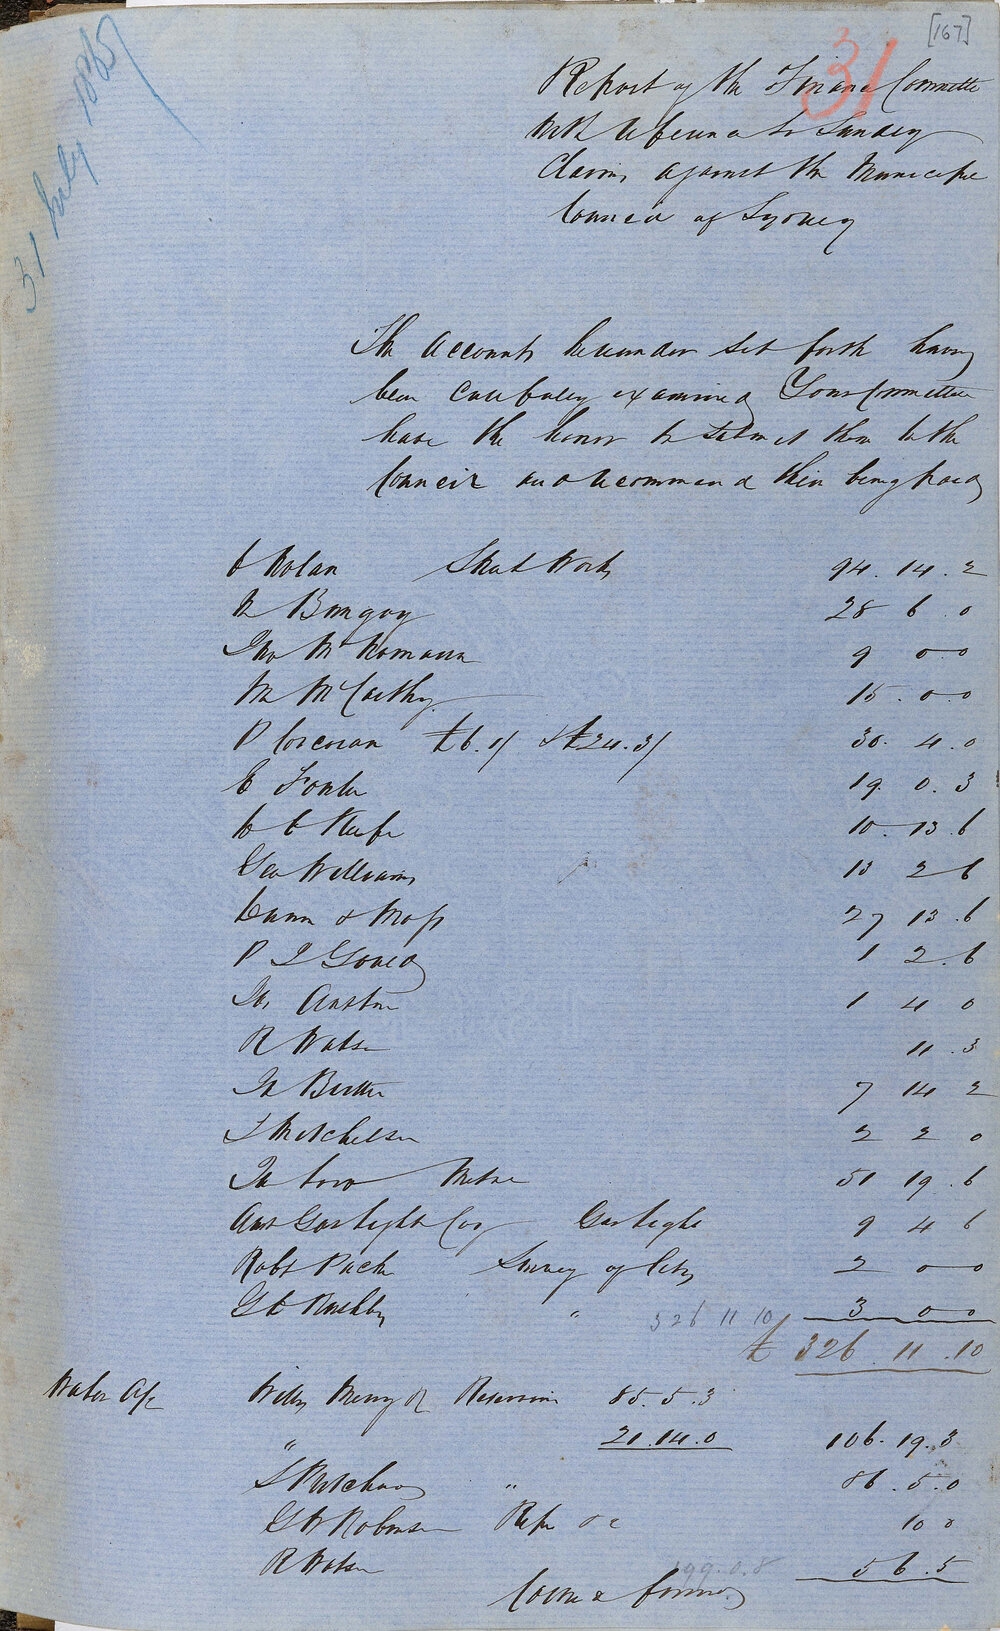 [167]
31
31 July 1865
Report of the Finance Committee
with reference to Sundry
Claims against the Municipal
Council of Sydney
The Accounts hereunder set forth having
been carefully examined Your Committee
have the honor to submit them to the
Council and recommend their being paid
Nolan Street Work 94. 14. 2
28 6. 0
Jno McNamara 9 0 0
M McCarthy 15. 0. 0
P Corcoran £6. 1/ & £24. 3/ 30. 4. 0
E Fowler 19. 0. 3
O'Keefe 10. 13. 6
Geo Williams 13 2 6
Dunn & Moss 27 13. 6
P J Gould 1 2. 6
Js Austin 1 4 0
R Watson 11. 3
7 14 2
S Mitchelson 2 2 0
Metal 51 19. 6
Aust Gas light Coy Gas light 9 4 6
Robt Pack Survey of City 2 0 0
" 3 0 0
326 11 10
£ 326. 11. 10
Water A/c Reservoir 85. 5. 3
" 21. 14. 0 106. 19. 3
" 86. 5. 0
G W Robinson 10 0
R Watson 5 6. 5
199. 0. 8
Carried forward